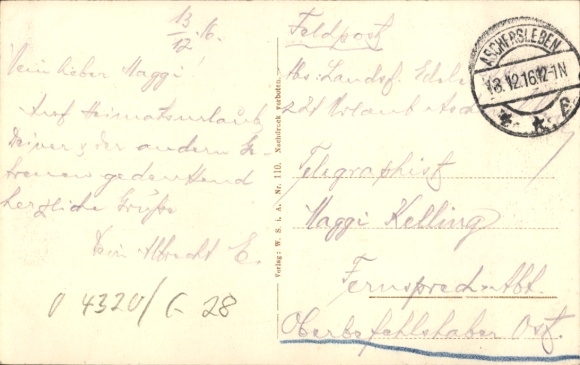 13/12.16.
Mein lieber Maggi!
Auf Heimatsurlaub
Deiner u. der andern Ge-
treuen gedenkend
herzliche Grüße
Dein Albrecht E.
V 4320/G 28
Verlag: W. S. i. A. Nr. 110. Nachdruck verboten.
Feldpost
Abs: Landsf.
zZt Urlaub
ASCHERSLEBEN
13.12.16.12-1N
Telegraphist
Maggi Kelling
Fernsprech-Abt.
Oberbefehlshaber Ost.